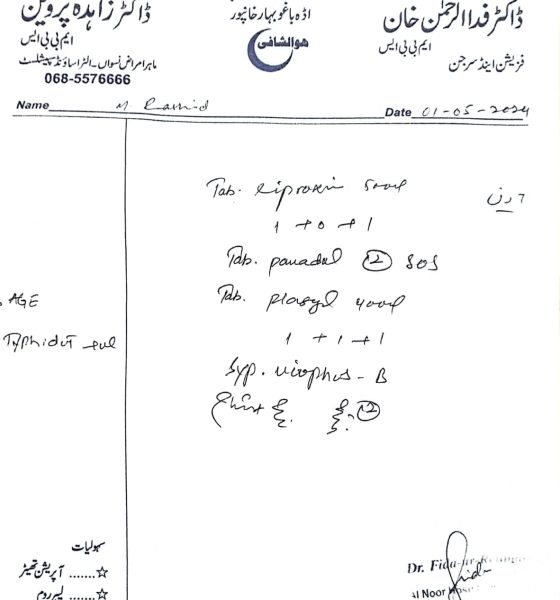 ڈاکٹر فدا الرحمٰن خان
ایم بی بی ایس
فزیشن اینڈ سرجن
اڈہ باغو بہار خانپور
ھوالشافی
ڈاکٹر زاہدہ پروین
ایم بی بی ایس
ماہر امراض نسواں۔الٹراساؤنڈ سپیشلسٹ
068-5576666
Name M Rashid
Date 01-05-2024
Tab. ciproxin 500mg
1 + 0 + 1
Tab. panadol 12 SOS
Tab. Flagyl 400mg
1 + 1 + 1
Syp.
AGE
Typhidot
سہولیات
☆...... آپریشن تھیٹر
☆...... لیبر روم
Dr. Fida-ur-Rehman
Al Noor Hos